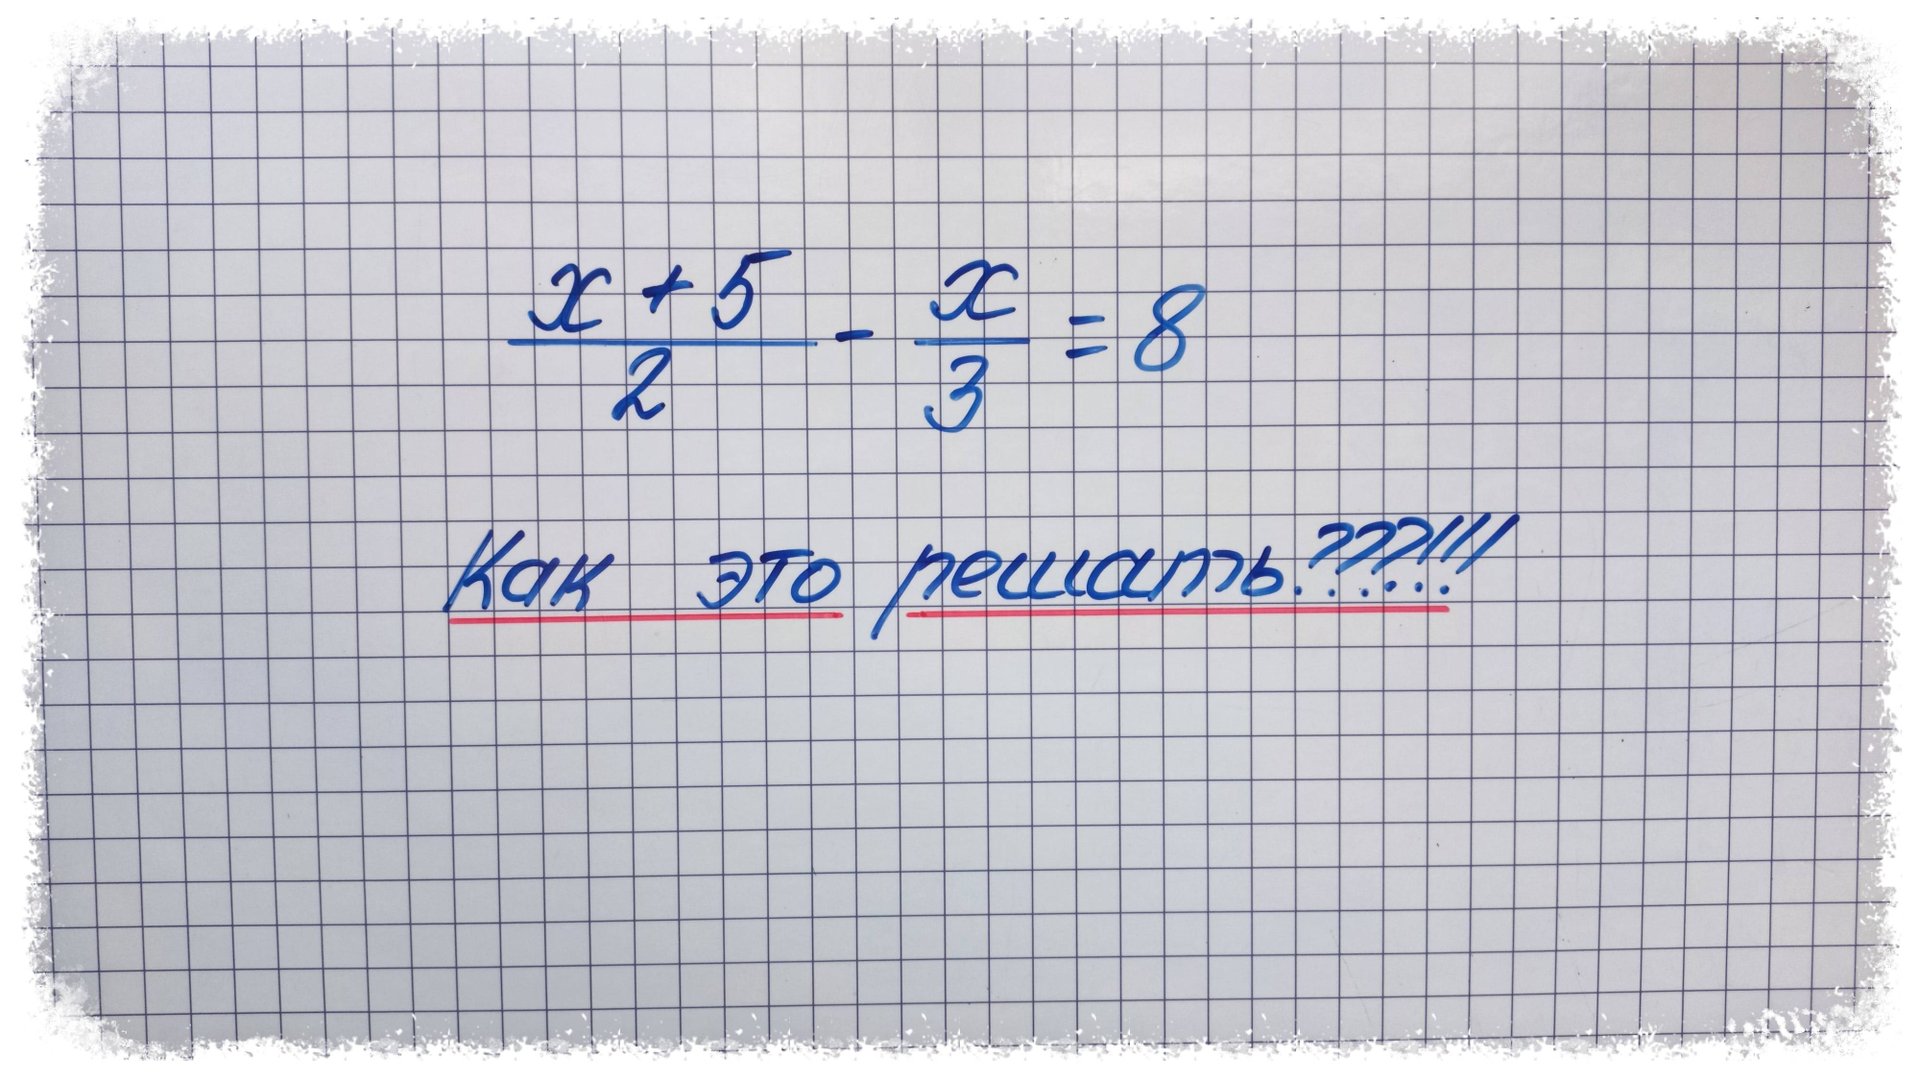 x + 5 / 2 - x / 3 = 8
Как это решать.???...!!!